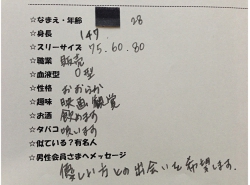 ☆なまえ・年齢 28
☆身長 147
☆スリーサイズ 75.60.80
☆職業 販売
☆血液型 O型
☆性格 おおらか
☆趣味 映画観覚
☆お酒 飲めます
☆タバコ 吸います
☆似ている?有名人
☆男性会員さまへメッセージ
優しい方との出会いを希望します。